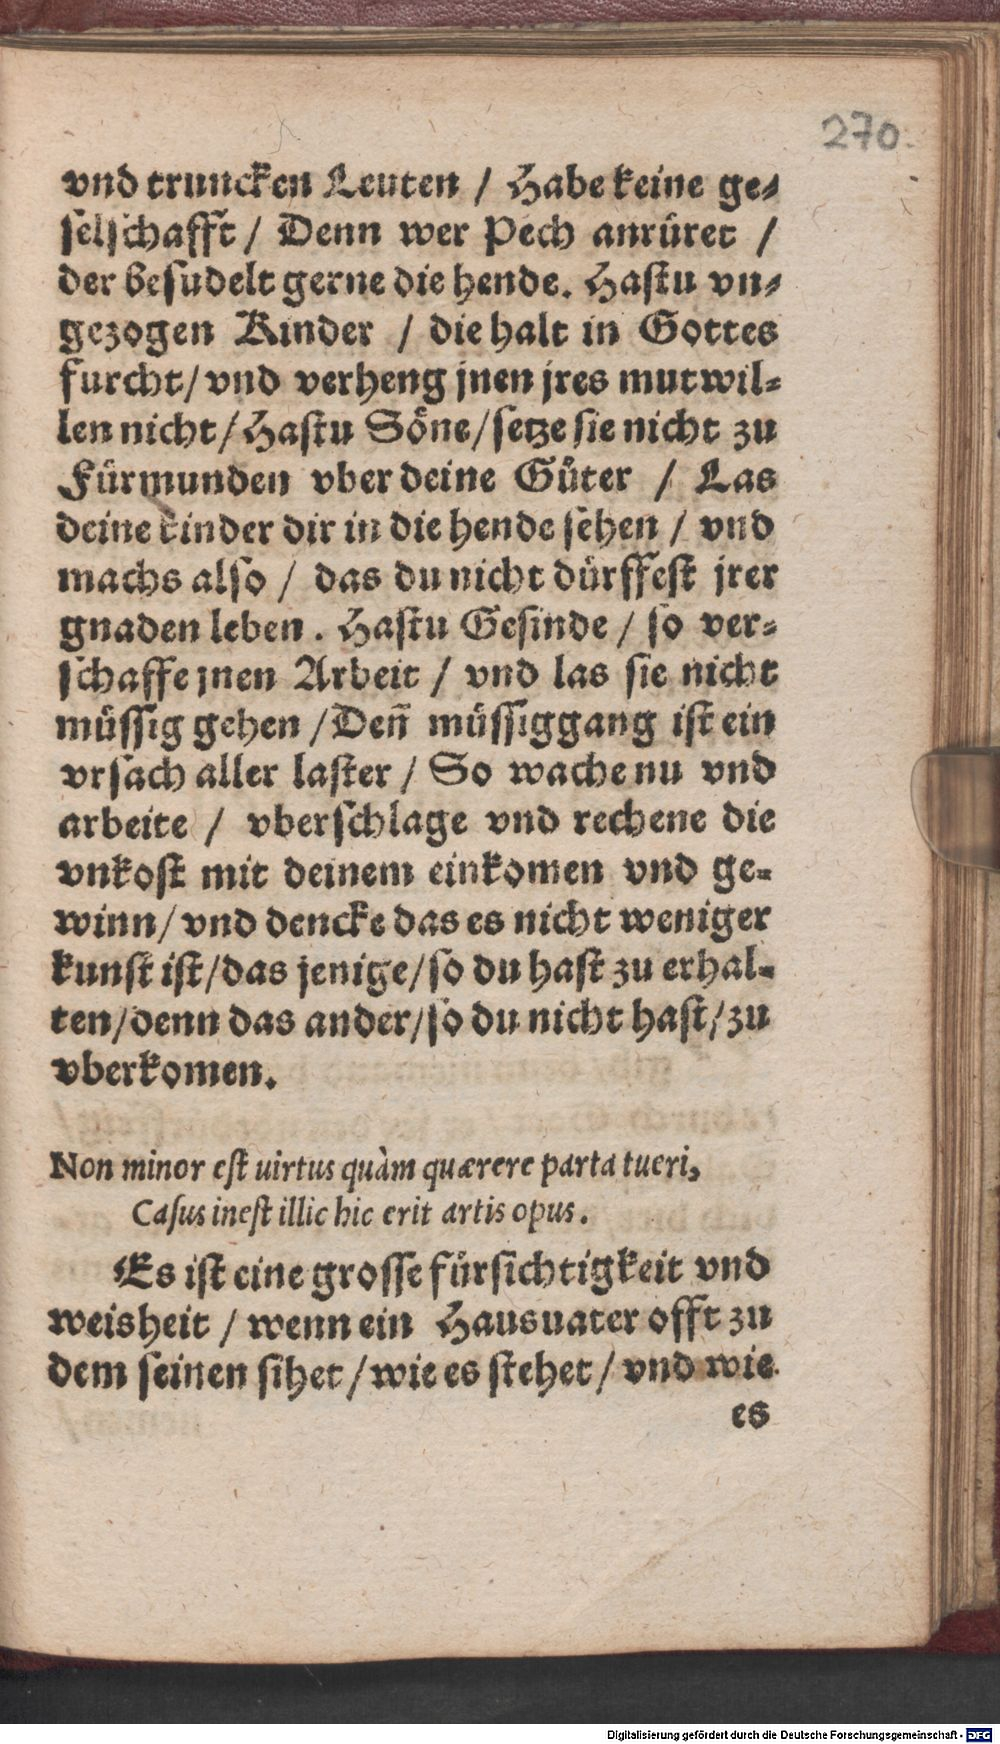 270.
vnd truncken Leuten / Habe keine ge-
selschafft / Denn wer Pech anrüret /
der besudelt gerne die hende. Hastu vn-
gezogen Kinder / die halt in Gottes
furcht / vnd verheng jnen jres mutwil-
len nicht / Hastu Söne / setze sie nicht zu
Fürmunden vber deine Güter / Las
deine kinder dir in die hende sehen / vnd
machs also / das du nicht dürffest jrer
gnaden leben. Hastu Gesinde / so ver-
schaffe jnen Arbeit / vnd las sie nicht
müssig gehen / Deñ müssiggang ist ein
vrsach aller laster / So wache nu vnd
arbeite / vberschlage vnd rechene die
vnkost mit deinem einkomen vnd ge-
winn / vnd dencke das es nicht weniger
kunst ist / das jenige / so du hast zu erhal-
ten / denn das ander / so du nicht hast / zu
vberkomen.
Non minor est uirtus quàm quærere parta tueri,
Casus inest illic hic erit artis opus.
Es ist eine grosse fürsichtigkeit vnd
weisheit / wenn ein Hausuater offt zu
dem seinen sihet / wie es stehet / vnd wie
es
Digitalisierung gefördert durch die Deutsche Forschungsgemeinschaft - DFG